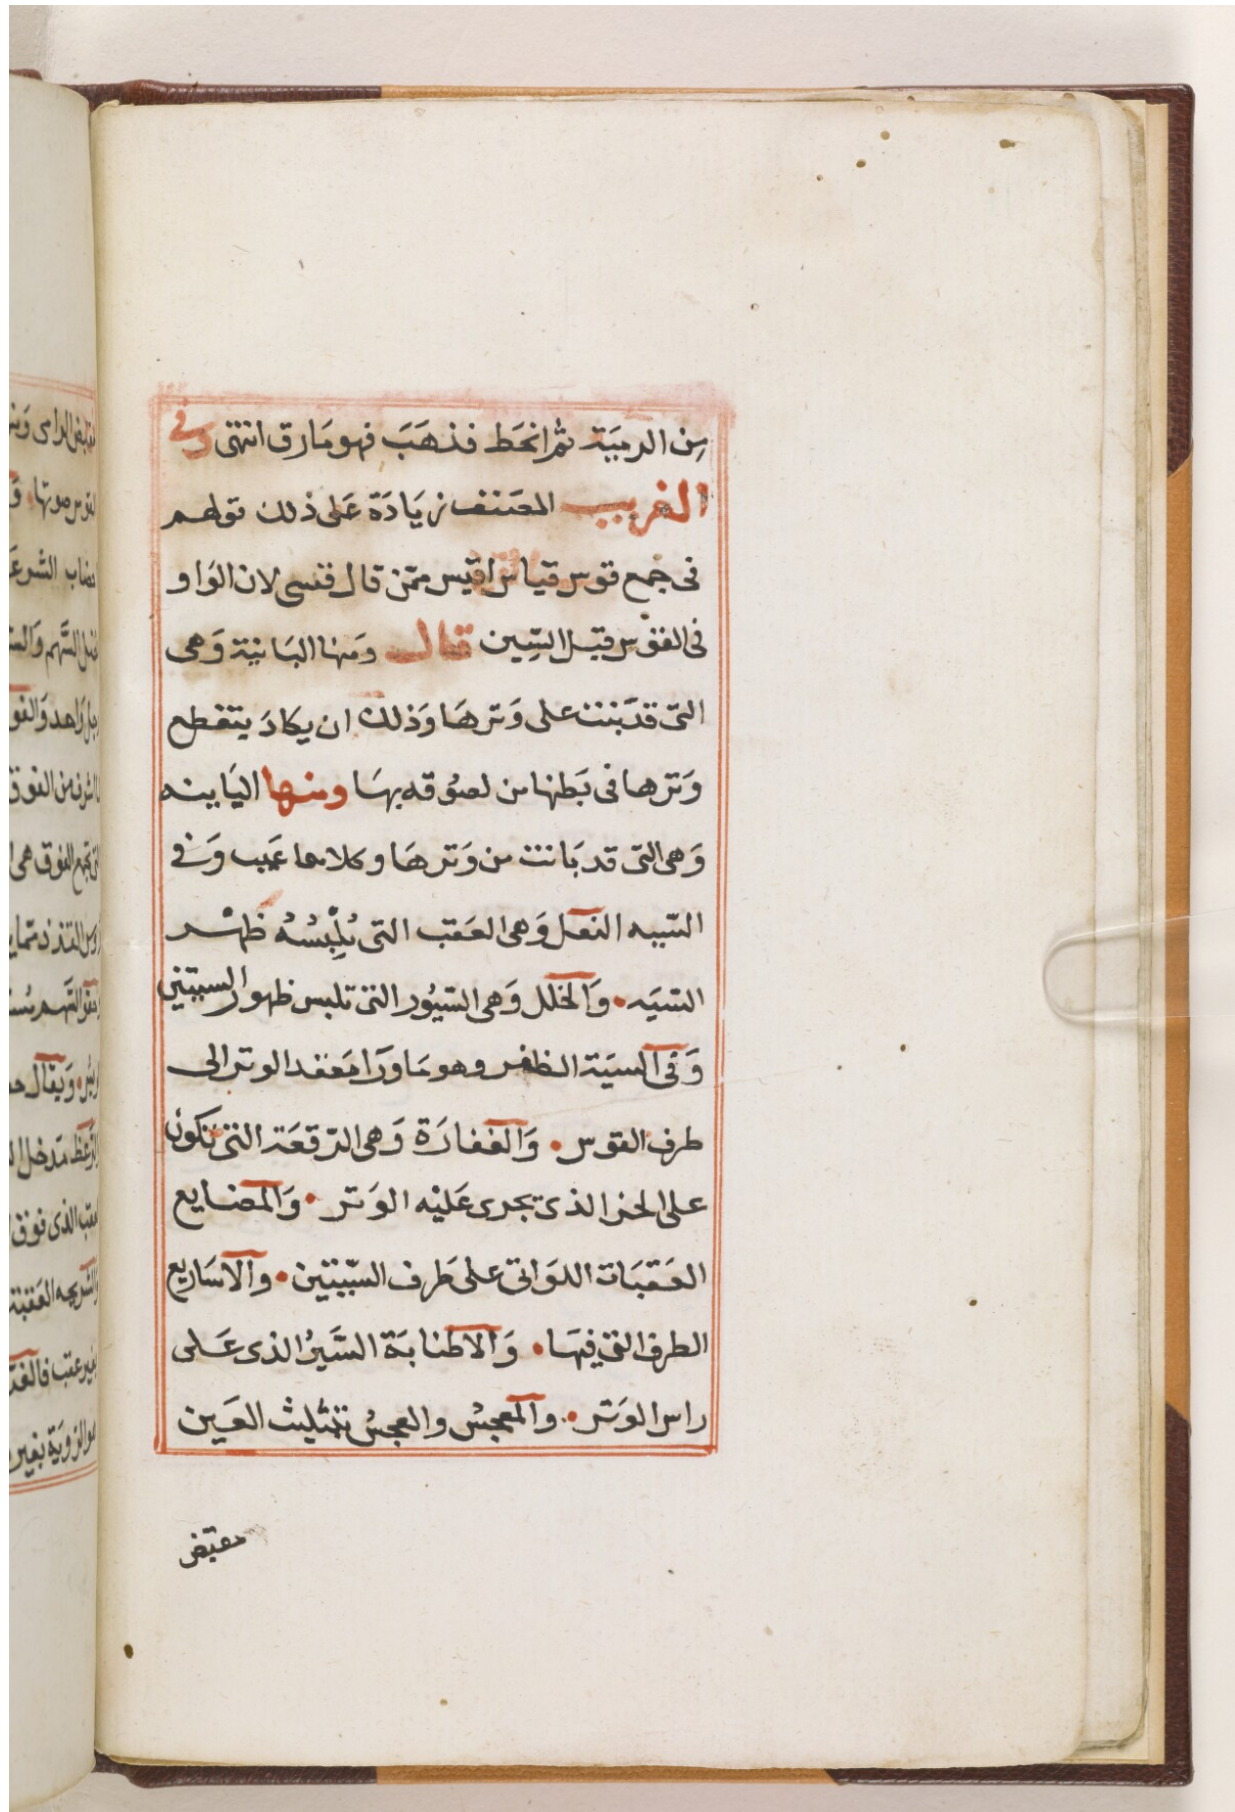 من الرميَة ثم انحَط فذهَبَ فهو مَارق انتهى وفى
الغريب المصَنف زيَادَة عَلى ذلك قولهم
فى جمع قوس قياس اقيس ممّن قال قسى لان الوَاو
فى القوْس قبْل السِّين قال وَمنها البَانِية وَهى
التى قدَ بَنت على وَترهَا وَذلك ان يكادَ ينقطع
وَترها فى بَطنها من لصُوقه بهَا ومنها البَاينه
وَهى التى قد بَانت من وَترهَا وكلاهما عَيب وَفى
السّيه النعَل وَهى العَقب التى يُلْبِسُهُ ظهْر
السّيَه • وَالخلل وَهى السّيُور التى تلبس ظهور السيتين
وَفى السيَة الظفر وهو مَا ورَا مَعقد الوتر الى
طرف القوس • وَالغفارَة وَهى الرّقعَة التى تكوُن
على الحز الذى يجرى عَليْه الوَتر • وَالمضايع
العَقبَات اللوَاتى على طَرف السّيتين • وَالاسَاريع
الطرف التى فيهَا • وَالاطنابَة السَّيرُ الذى عَلى
راس الوَتر • والمعجسُ والعجسُ تثليث العَين
مقبض